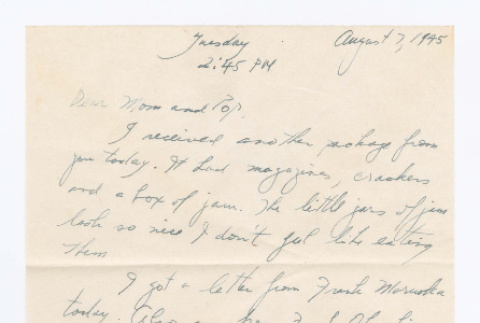 Tuesday August 7, 1945
2:45 PM
Dear Mom and Pop,
I received another package from
you today. It had magazines, crackers
and a box of jam. The little jars of jam
look so nice I don't feel like eating
them
I got a letter from Frank
today.